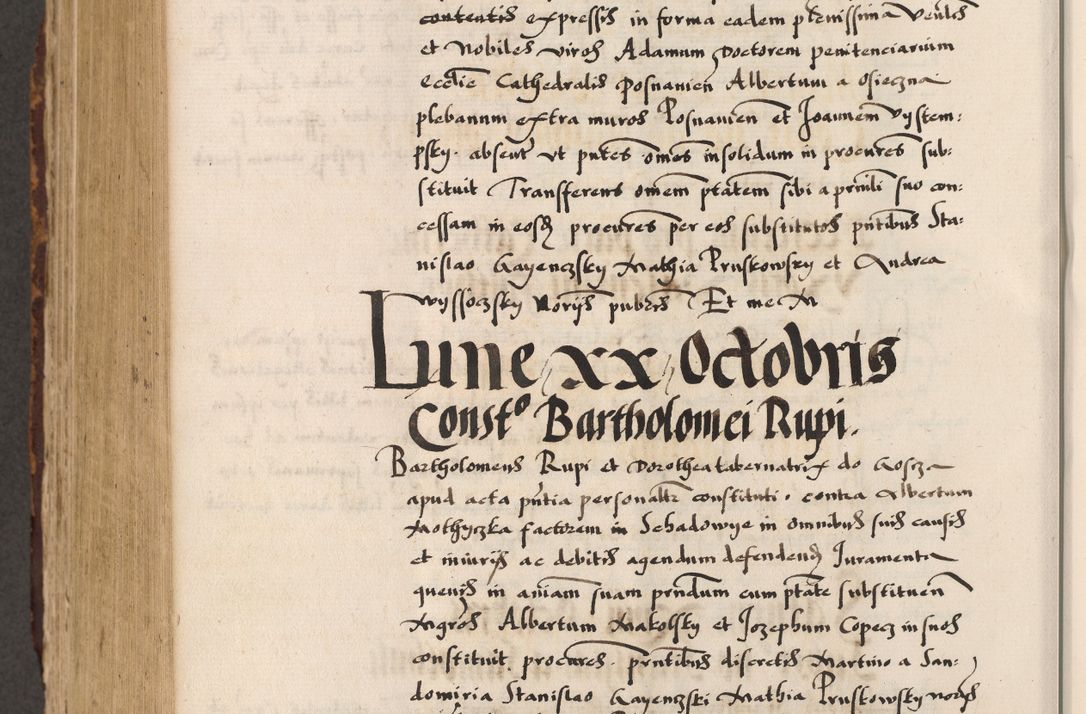 contentis expressis in forma eadem plenissima Venlis
et Nobiles viros Adamum Doctorem penitenciarium
ecclie Cathedralis Posnanien Albertum a Osieczna
plebanum extra muros Posnanien et Joannem Vystem:
psky. absent ut pntes omes insolidum in procures sub:
stituit Transferens omem ptatem sibi a prinli suo con:
cessam in eosdem procures per eos substitutos pntibus Sta:
nislao Gayenczsky Mathia Pruskowsky et Andrea
Wyssoczsky Norijs pubcis Et me M
Lune xx Octobris
Constº Bartholomei Rupi.
Bartholomeus Rupi et Dorothea tabernatrix de Gosza
apud acta pntia personalr constituti. contra Albertum
Mothyczka factorem in Sebadowye in omnibus suis causis
et iniurijs ac debitis agendum defendend Juramenta
quevis in aniam suam prndum cum ptate substituen
Mgros Albertum Makolsky et Jozephum Copecz in suos
constituit procures. prntibus discretis Martino a San:
domiria Stanislao Gayenczski Mathia Pruskowsky norijs